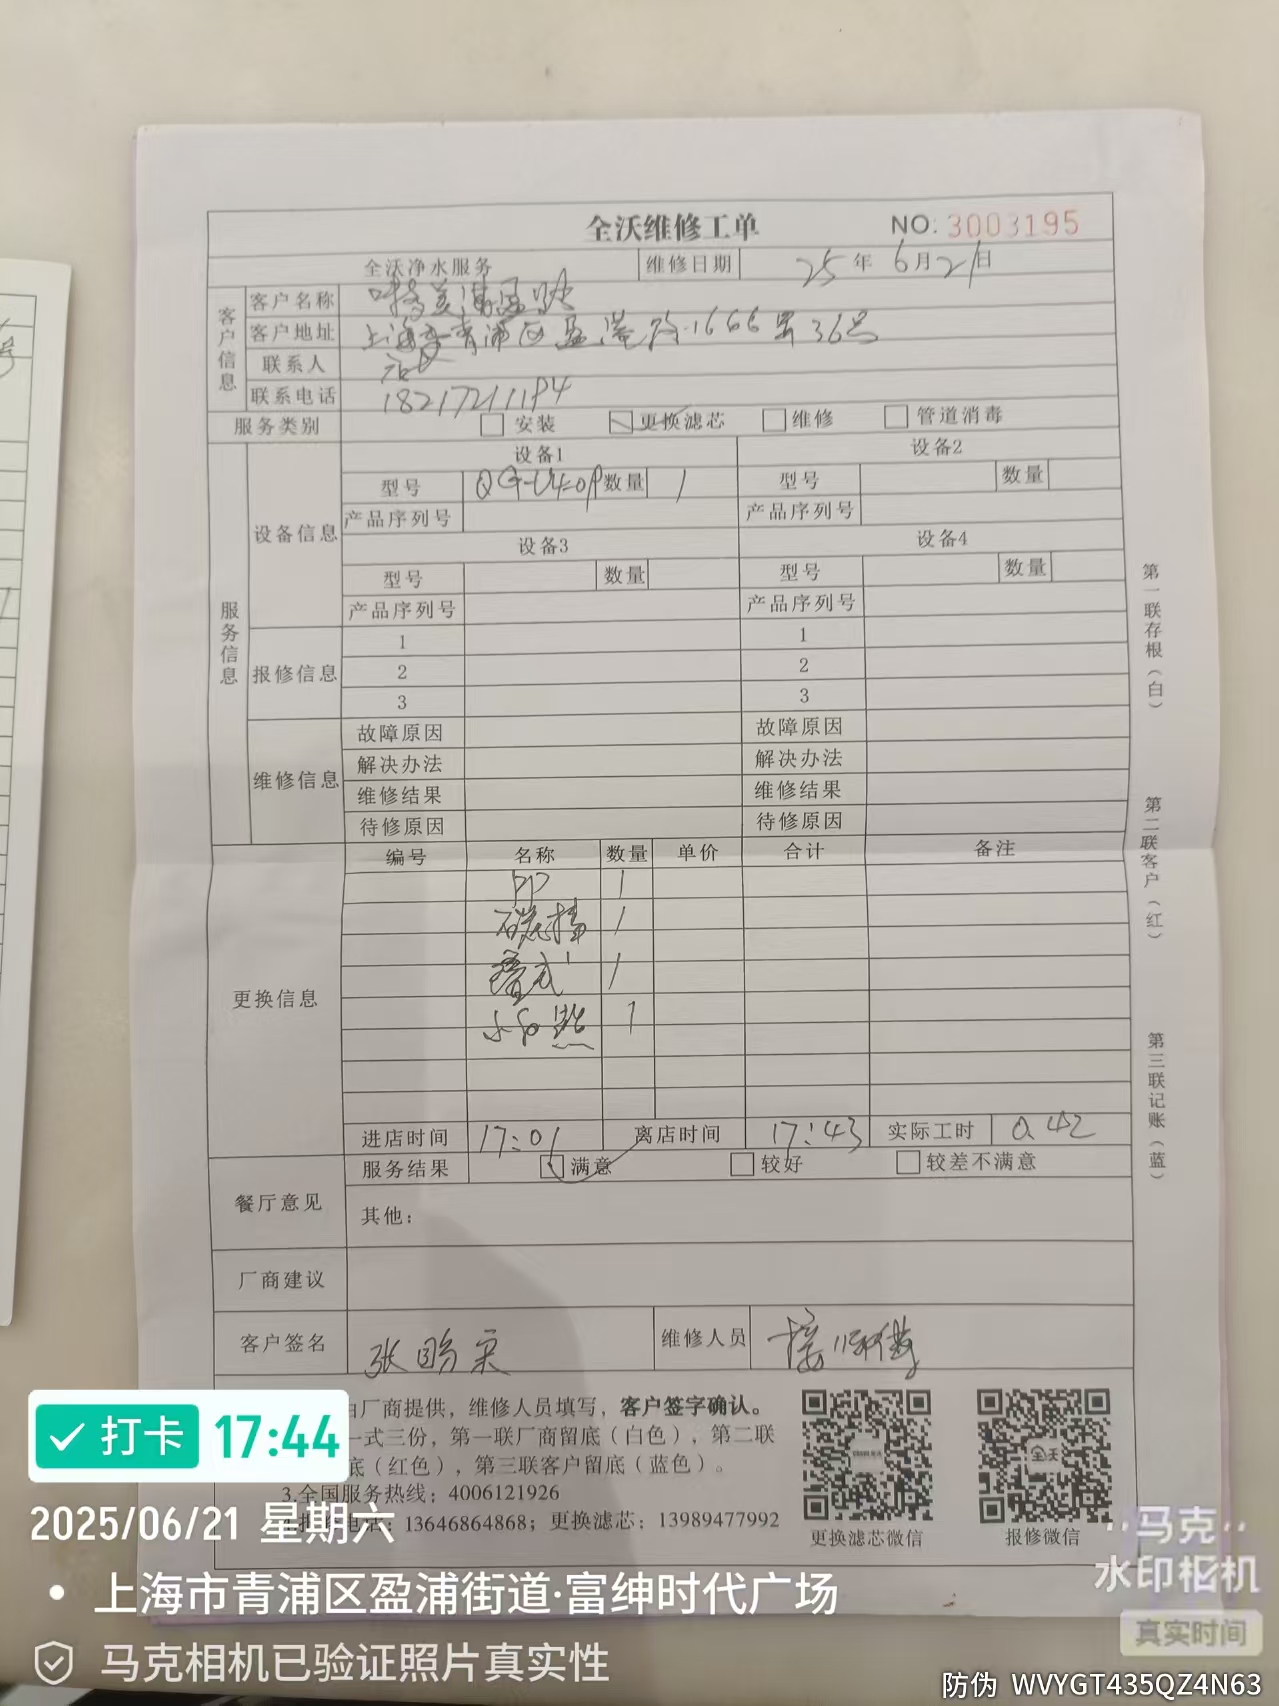 全沃维修工单 NO: 3003195
全沃净水服务 维修日期 25年6月21日
客户信息
客户名称
客户地址 上海市青浦区盈港路1666弄36号
联系人
联系电话 18217211194
服务类别 安装 更换滤芯 维修 管道消毒
服务信息
设备信息
设备1 设备2
型号 数量 1 型号 数量
产品序列号 产品序列号
设备3 设备4
型号 数量 型号 数量
产品序列号 产品序列号
报修信息
1 1
2 2
3 3
维修信息
故障原因 故障原因
解决办法 解决办法
维修结果 维修结果
待修原因 待修原因
更换信息
编号 名称 数量 单价 合计 备注
PP 1
碳棒 1
1
1
进店时间 17:01 离店时间 17:43 实际工时 0.42
餐厅意见
服务结果 满意 较好 较差不满意
其他:
厂商建议
客户签名 维修人员
由厂商提供，维修人员填写，客户签字确认。
一式三份，第一联厂商留底（白色），第二联
底（红色），第三联客户留底（蓝色）。
3.全国服务热线：4006121926
电话：13646864868；更换滤芯：13989477992
更换滤芯微信 报修微信
全天
第一联存根（白）
第二联客户（红）
第三联记账（蓝）
打卡 17:44
2025/06/21 星期六
上海市青浦区盈浦街道·富绅时代广场
马克相机已验证照片真实性
马克
水印相机
真实时间
防伪 WVYGT435QZ4N63